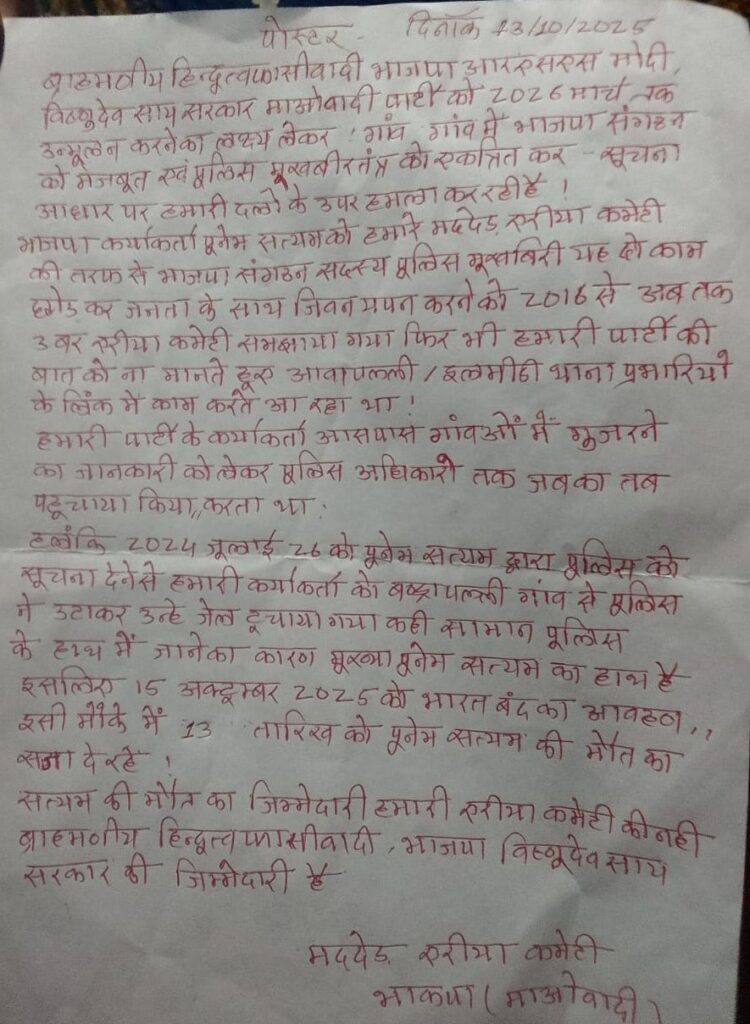 पोस्टर - दिनाँक 13/10/2025
ब्राहमणीय हिन्दुत्वफासीवादी भाजपा आरएसएस मोदी,
विष्णुदेव साय सरकार माओवादी पार्टी को 2026 मार्च तक
उन्मूलन करनेका लक्ष्य लेकर ! गांव गांव में भाजपा संगठन
को मजबूत एवं पुलिस मूखबीरतंत्र को एकत्रित कर - सूचना
आधार पर हमारी दलो के उपर हमला कर रही है !
भाजपा कार्यकर्ता पूनेम सत्यम को हमारे मददेड़ एरीया कमेटी
की तरफ से भाजपा संगठन सदस्य पुलिस मूखबिरी यह दो काम
छोड़ कर जनता के साथ जिवन यपन करने को 2016 से अब तक
3 बर एरीया कमेटी समझाया गया फिर भी हमारी पार्टी की
बात को ना मानते हूए आवापल्ली / इलमीडी थाना प्रभारियो
के लिंक में काम करते आ रहा था !
हमारी पार्टी के कर्याकर्ता आसपास गांवओं में गुजरने
का जानकारी को लेकर पुलिस अधिकारी तक जबका तब
पहूचाया किया,, करता था .
हलंकि 2024 जूलाई 26 को पूनेम सत्यम द्वारा पुलिस को
सूचना देनेसे हमारी कर्याकर्ता को पुलिस
ने उटाकर उन्हे जेल दूचाया गया कही सामान पुलिस
के हाथ में जानेका कारण मूख्या पूनेम सत्यम का हाथ है
इसलिए 15 अक्टूम्बर 2025 को भारत बंद का आवहन,,
इसी मौके में 13 तारिख को पूनेम सत्यम की मौत का
सजा दे रहे !
सत्यम की मौत का जिम्मेदारी हमारी एरीया कमेटी की नही
ब्राहमणीय हिन्दुत्व फासीवादी, भाजपा विष्णुदेव साय
सरकार की जिम्मेदारी है
मददेड़ एरीया कमेटी
भाकपा (माओवादी)